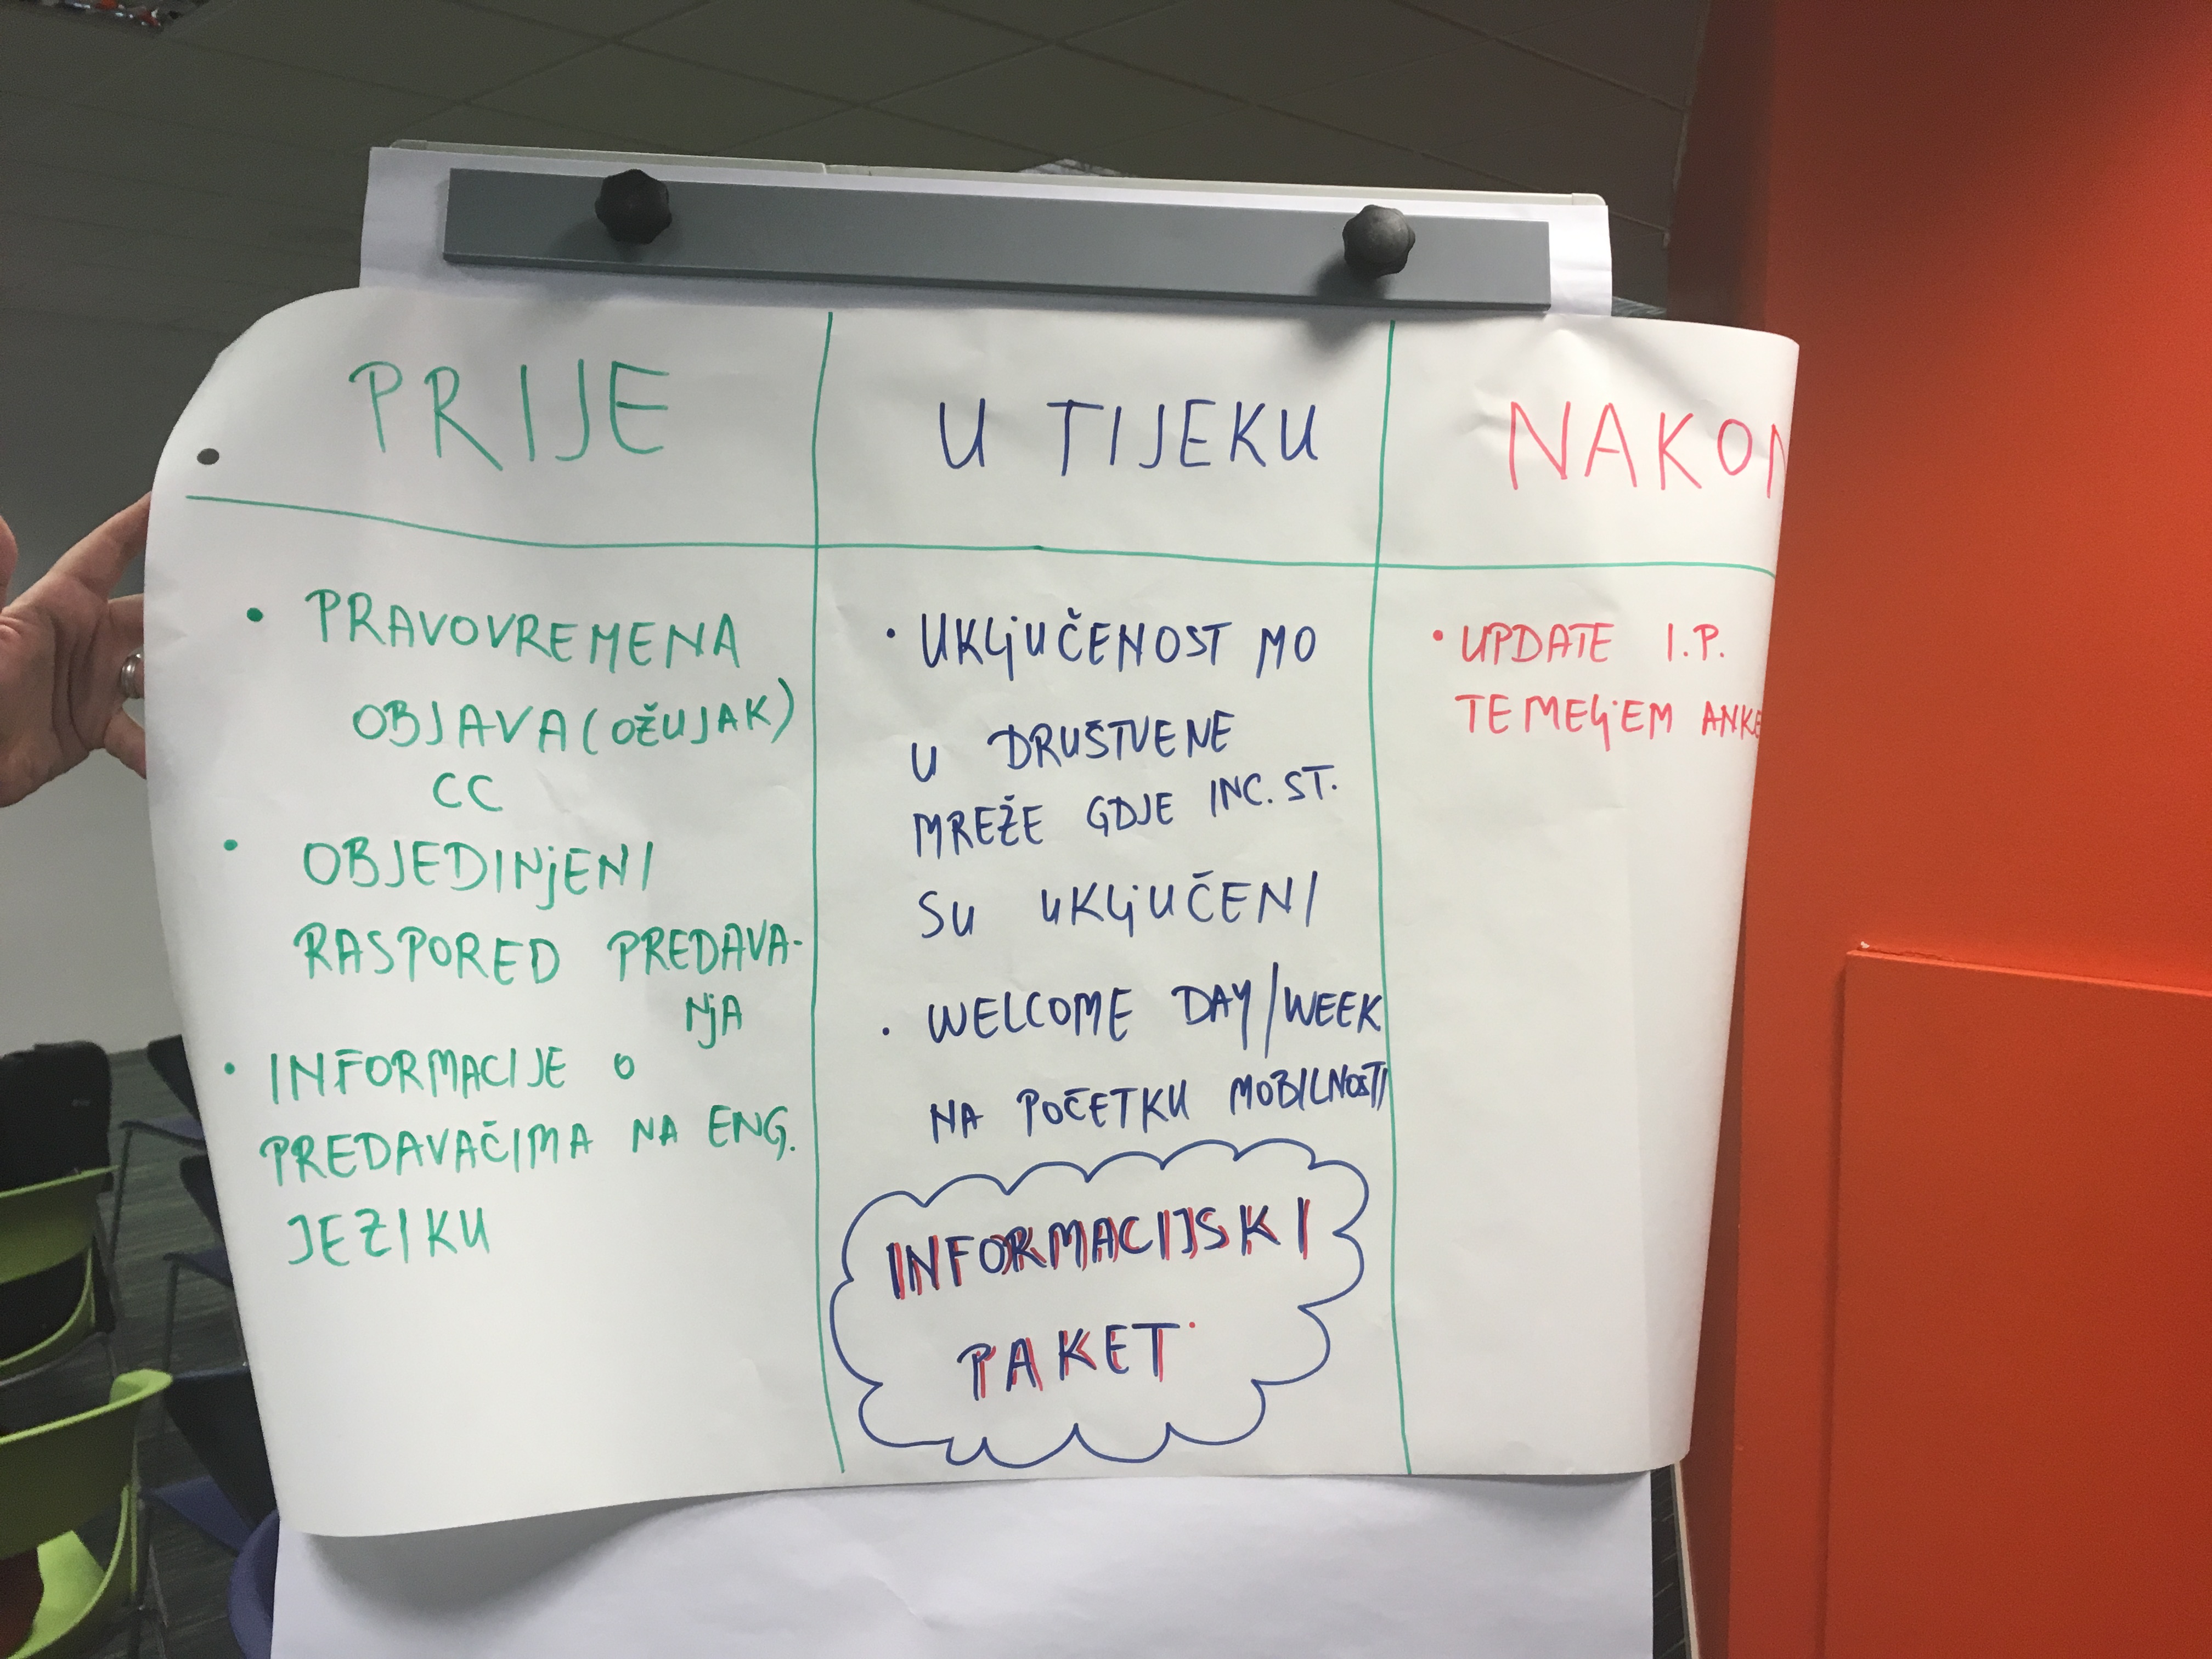 PRIJE
• PRAVOVREMENA
OBJAVA (OŽUJAK)
CC
• OBJEDINjENI
RASPORED PREDAVA-
NjA
• INFORMACIJE O
PREDAVAČIMA NA ENG.
JEZIKU
U TIJEKU
• UKLjUČENOST MO
U DRUŠTVENE
MREŽE GDJE INC. ST.
SU UKLjUČENI
• WELCOME DAY/WEEK
NA POČETKU MOBILNOSTI
INFORMACIJSKI
PAKET
NAKON
• UPDATE I.P.
TEMELjEM ANKE